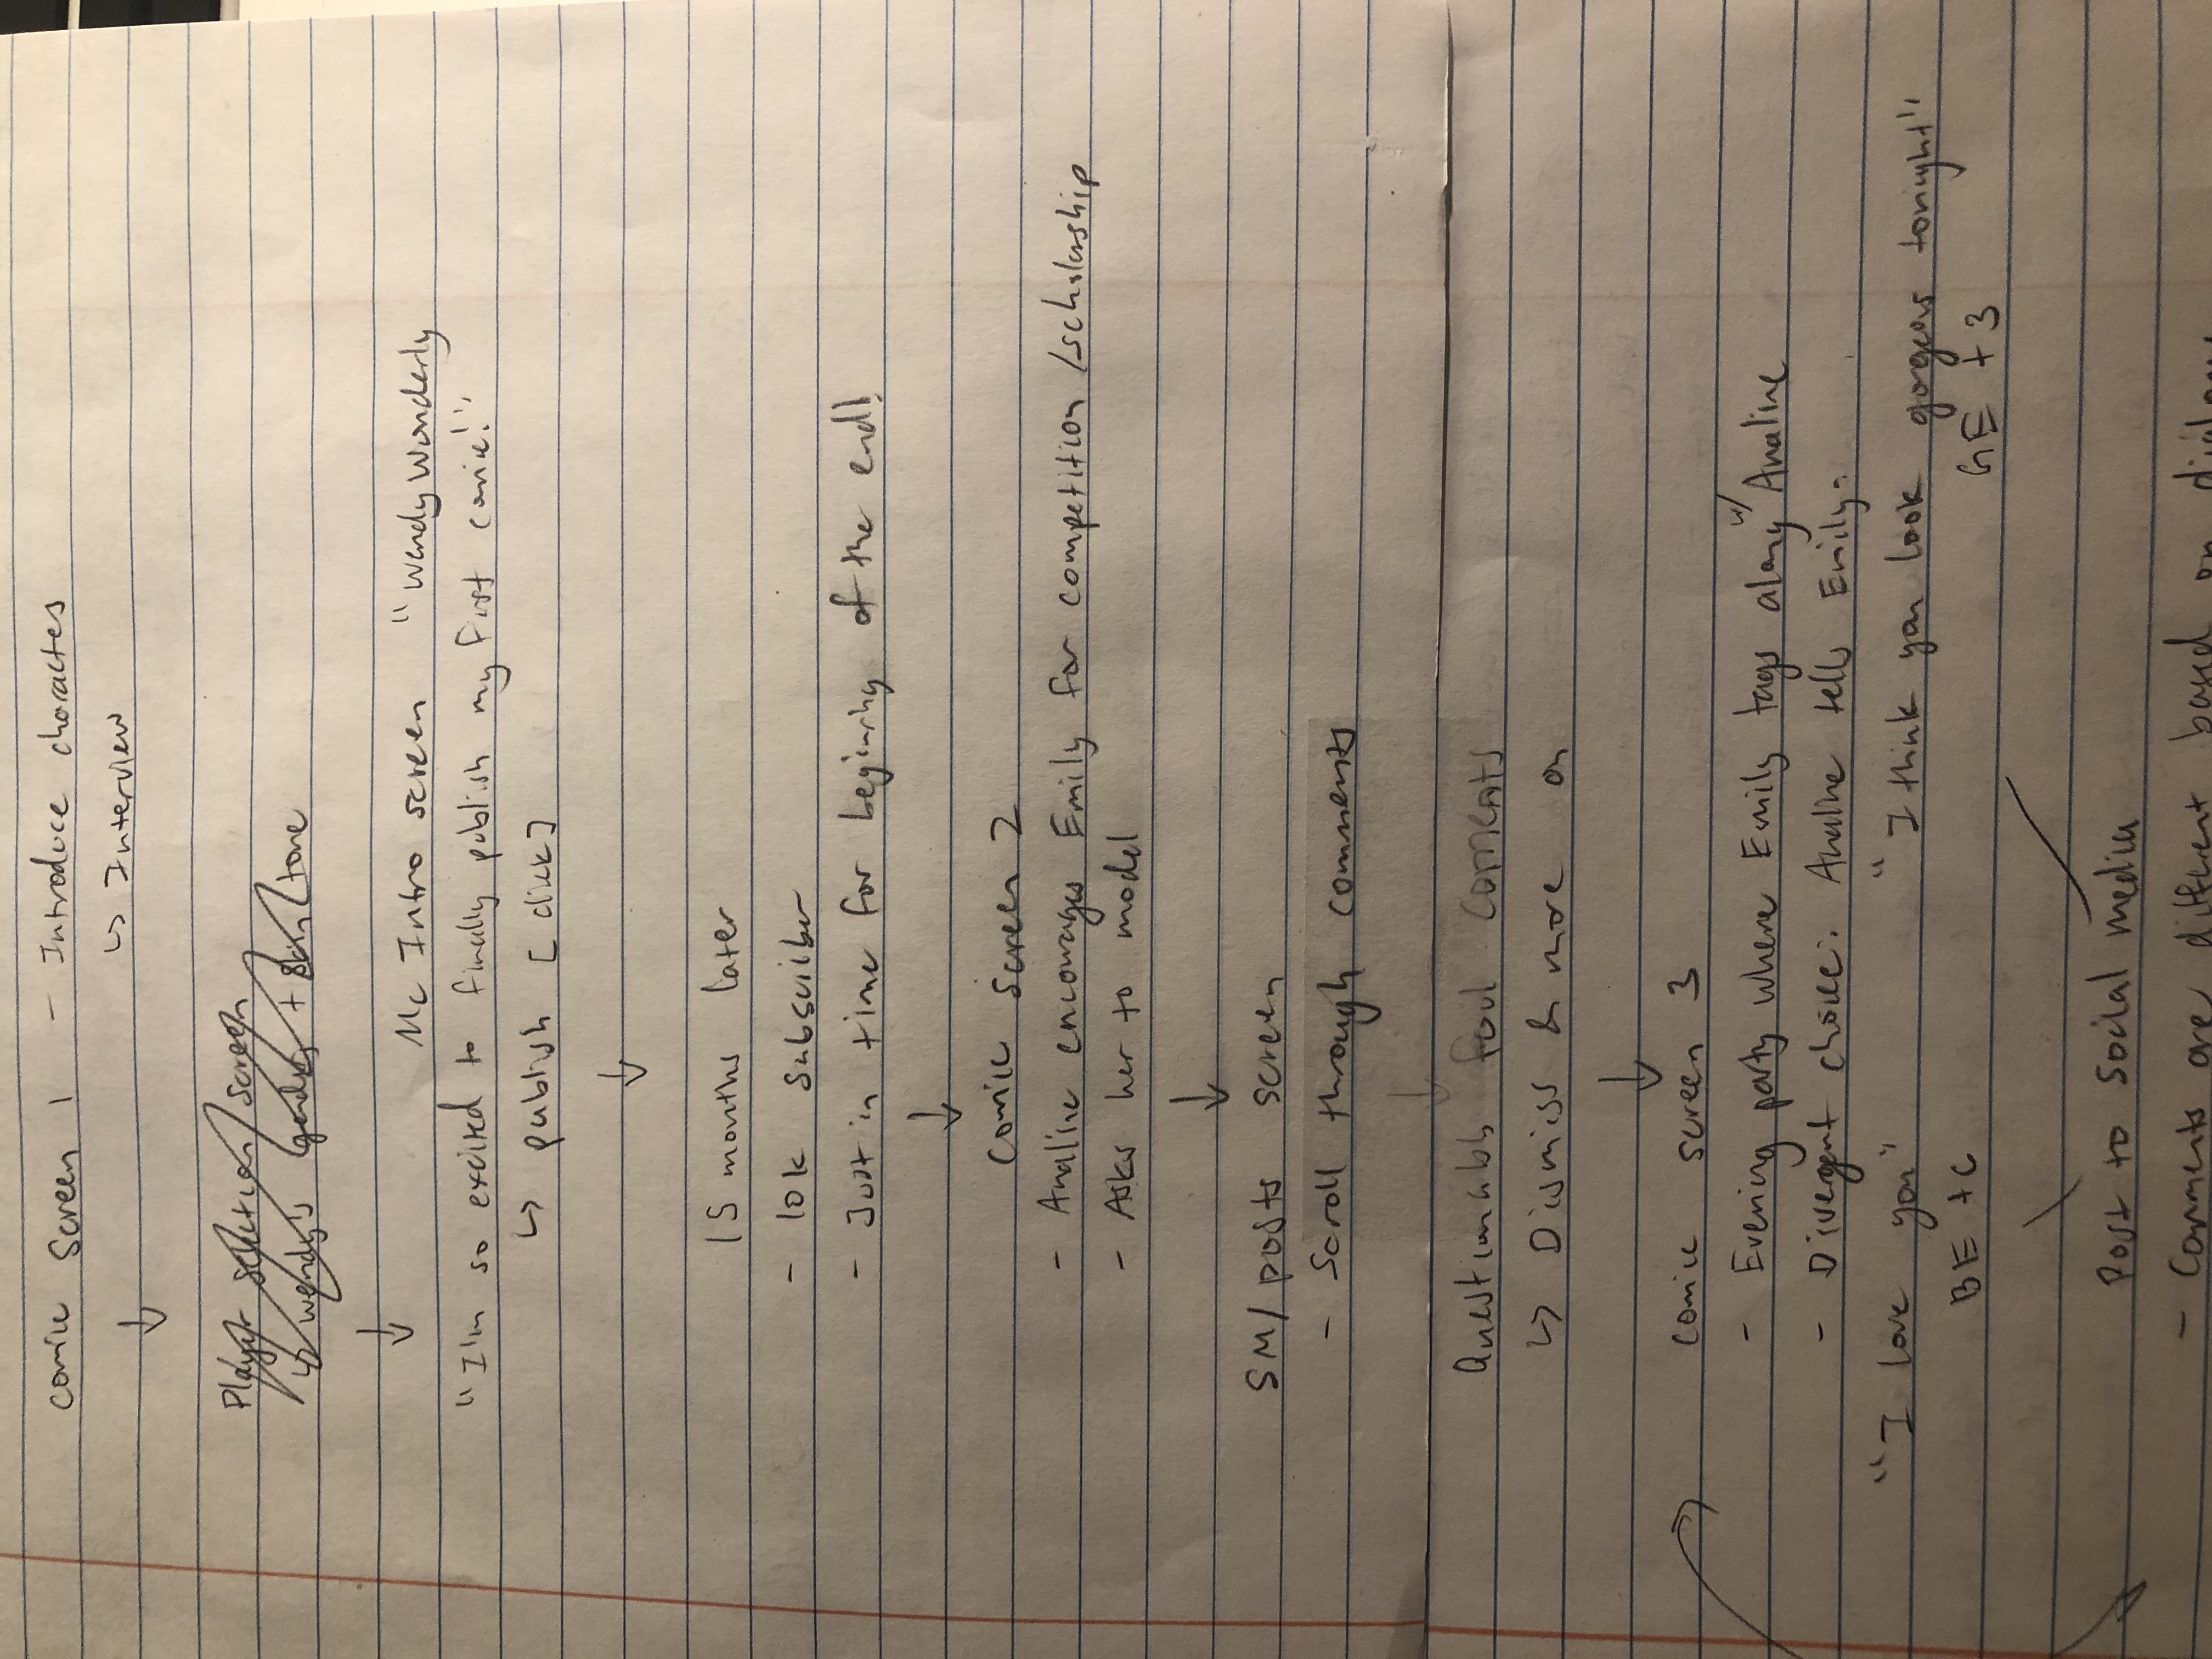 Comic Screen 1 - Introduce characters
↳ Interview
↓
Player selection screen
↳ Wendy's gender + skin tone
↓
MC Intro screen "Wendy Wonderly
"I'm so excited to finally publish my first comic!"
↳ publish [click]
↓
15 months later
- 10k subscriber
- Just in time for beginning of the end!
↓
Comic Screen 2
- Analine encourages Emily for competition /scholarship
- Asks her to model
↓
SM/posts screen
- Scroll through comments
↓
Questionable foul comments
↳ Dismiss & move on
↓
Comic screen 3
- Evening party where Emily tags along w/ Analine
- Divergent choice: Analine tells Emily:
"I love you" "I think you look gorgeous tonight"
BE +6 GE +3
Post to social media
- Comments are different based on dialogue